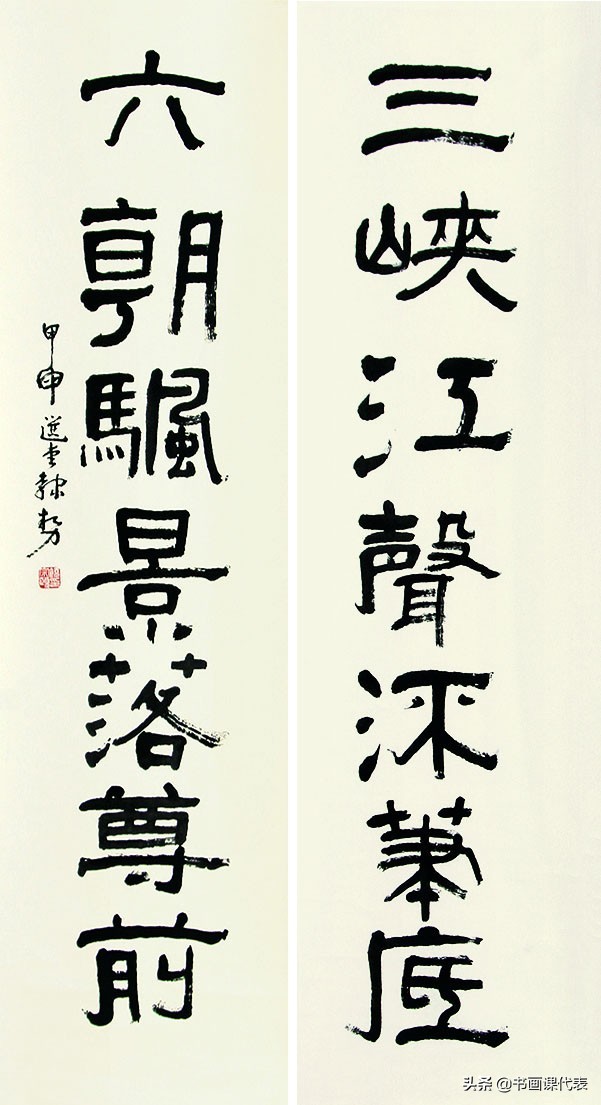 三峽江聲流筆底
六朝颿景落尊前
甲申選堂隸勢
头条 @书画课代表